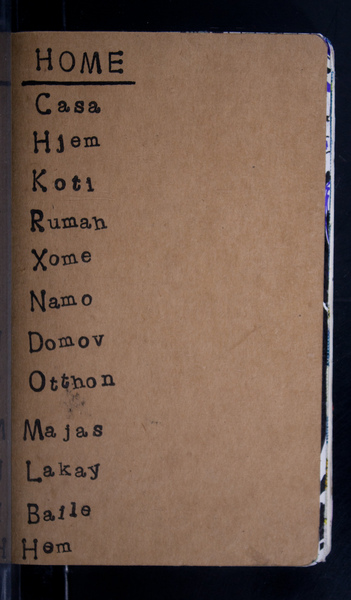 HOME
Casa
Hjem
Koti
Rumah
Xome
Namo
Domov
Otthon
Majas
Lakay
Baile
Hem